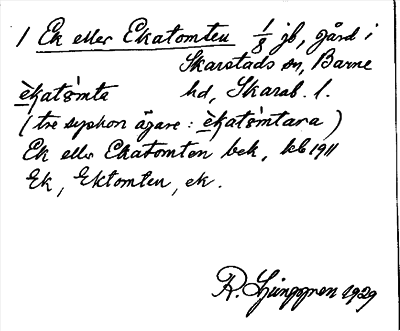 1 Ek eller Ekatomten 1/8 jb, gård i
Skarstads sn, Barne
èkatòmta hd, Skarab. l.
(tre syskon ägare: èkatòmtara)
Ek eller Ekatomten bek, kb 1911
Ek, Ektomten, ek.
R. Ljunggren 1929